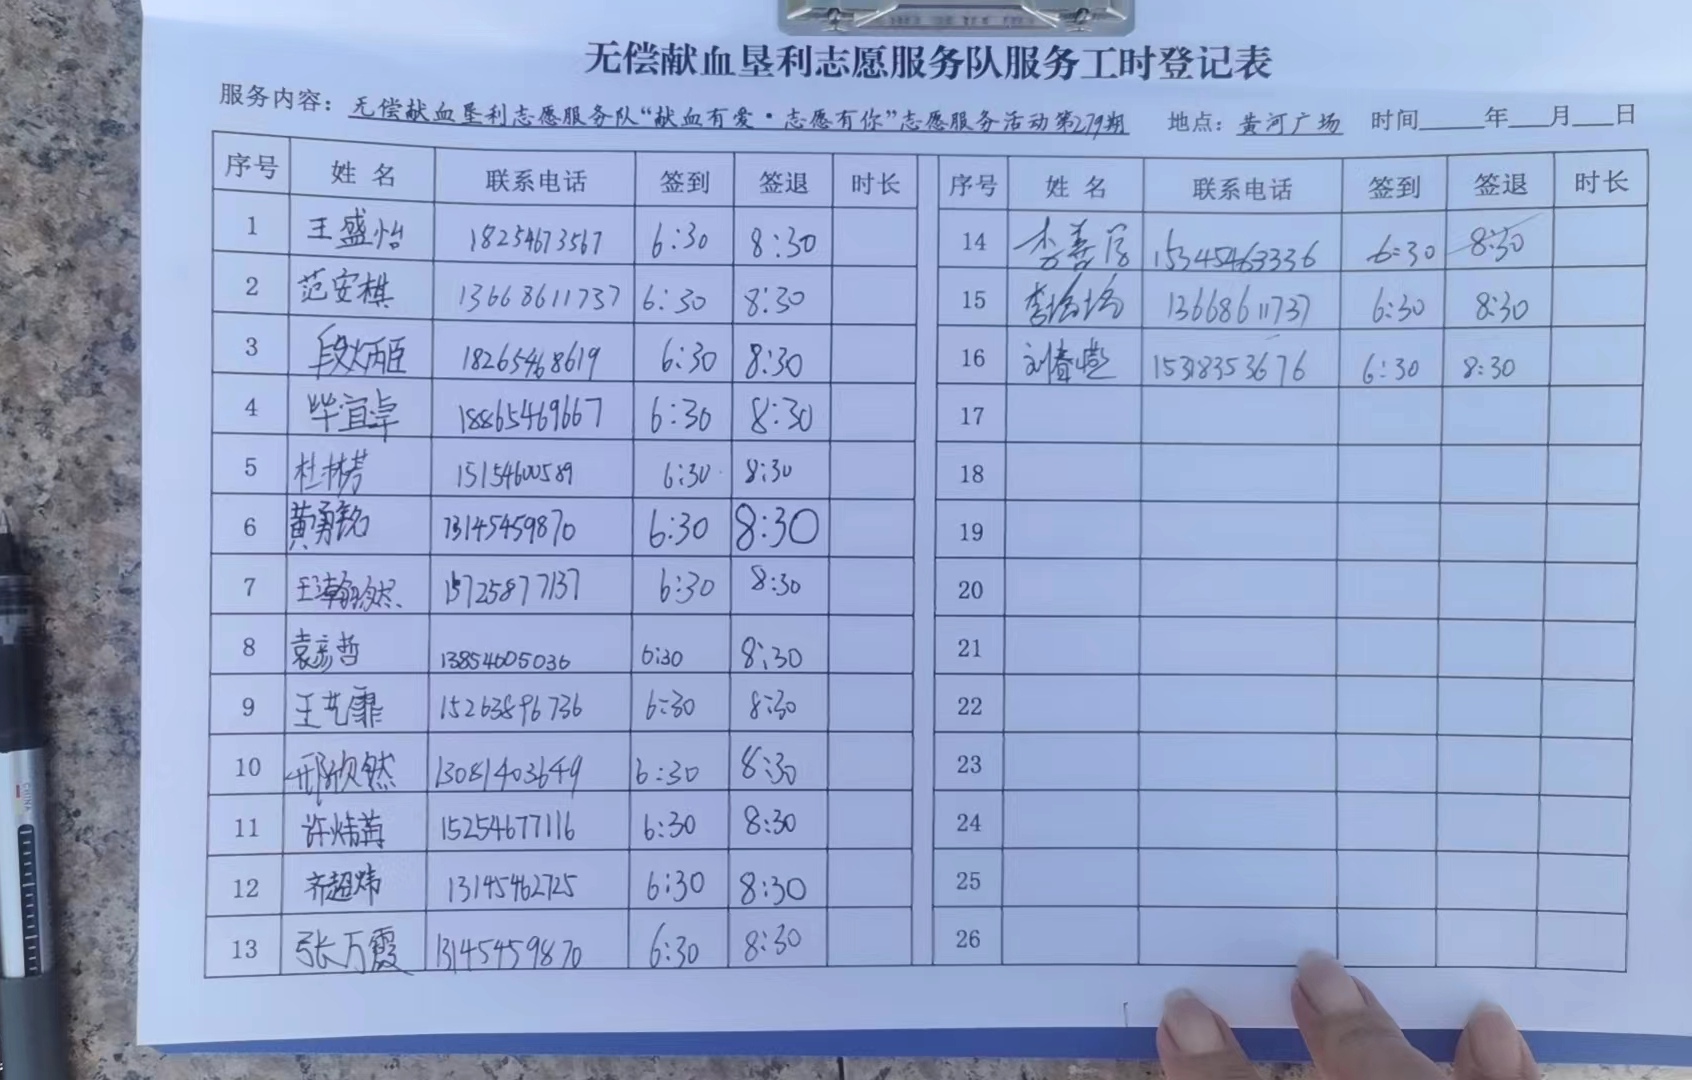 无偿献血垦利志愿服务队服务工时登记表
服务内容：无偿献血垦利志愿服务队“献血有爱·志愿有你”志愿服务活动第279期 地点：黄河广场 时间____年___月___日
序号 姓名 联系电话 签到 签退 时长 序号 姓名 联系电话 签到 签退 时长
1 王盛怡 18254673567 6:30 8:30 14 15345463336 6:30 8:30
2 范安棋 13668611737 6:30 8:30 15 13668611737 6:30 8:30
3 段炳臣 18265468619 6:30 8:30 16 6:30 8:30
4 毕宜卓 18865469667 6:30 8:30 17
5 15154600589 6:30 8:30 18
6 黄勇铭 13145459870 6:30 8:30 19
7 15725877137 6:30 8:30 20
8 袁彦哲 13854605036 6:30 8:30 21
9 王艺霏 15263896736 6:30 8:30 22
10 邢欣然 13081403649 6:30 8:30 23
11 15254677116 6:30 8:30 24
12 齐超炜 13145462725 6:30 8:30 25
13 张万霞 13145459870 6:30 8:30 26